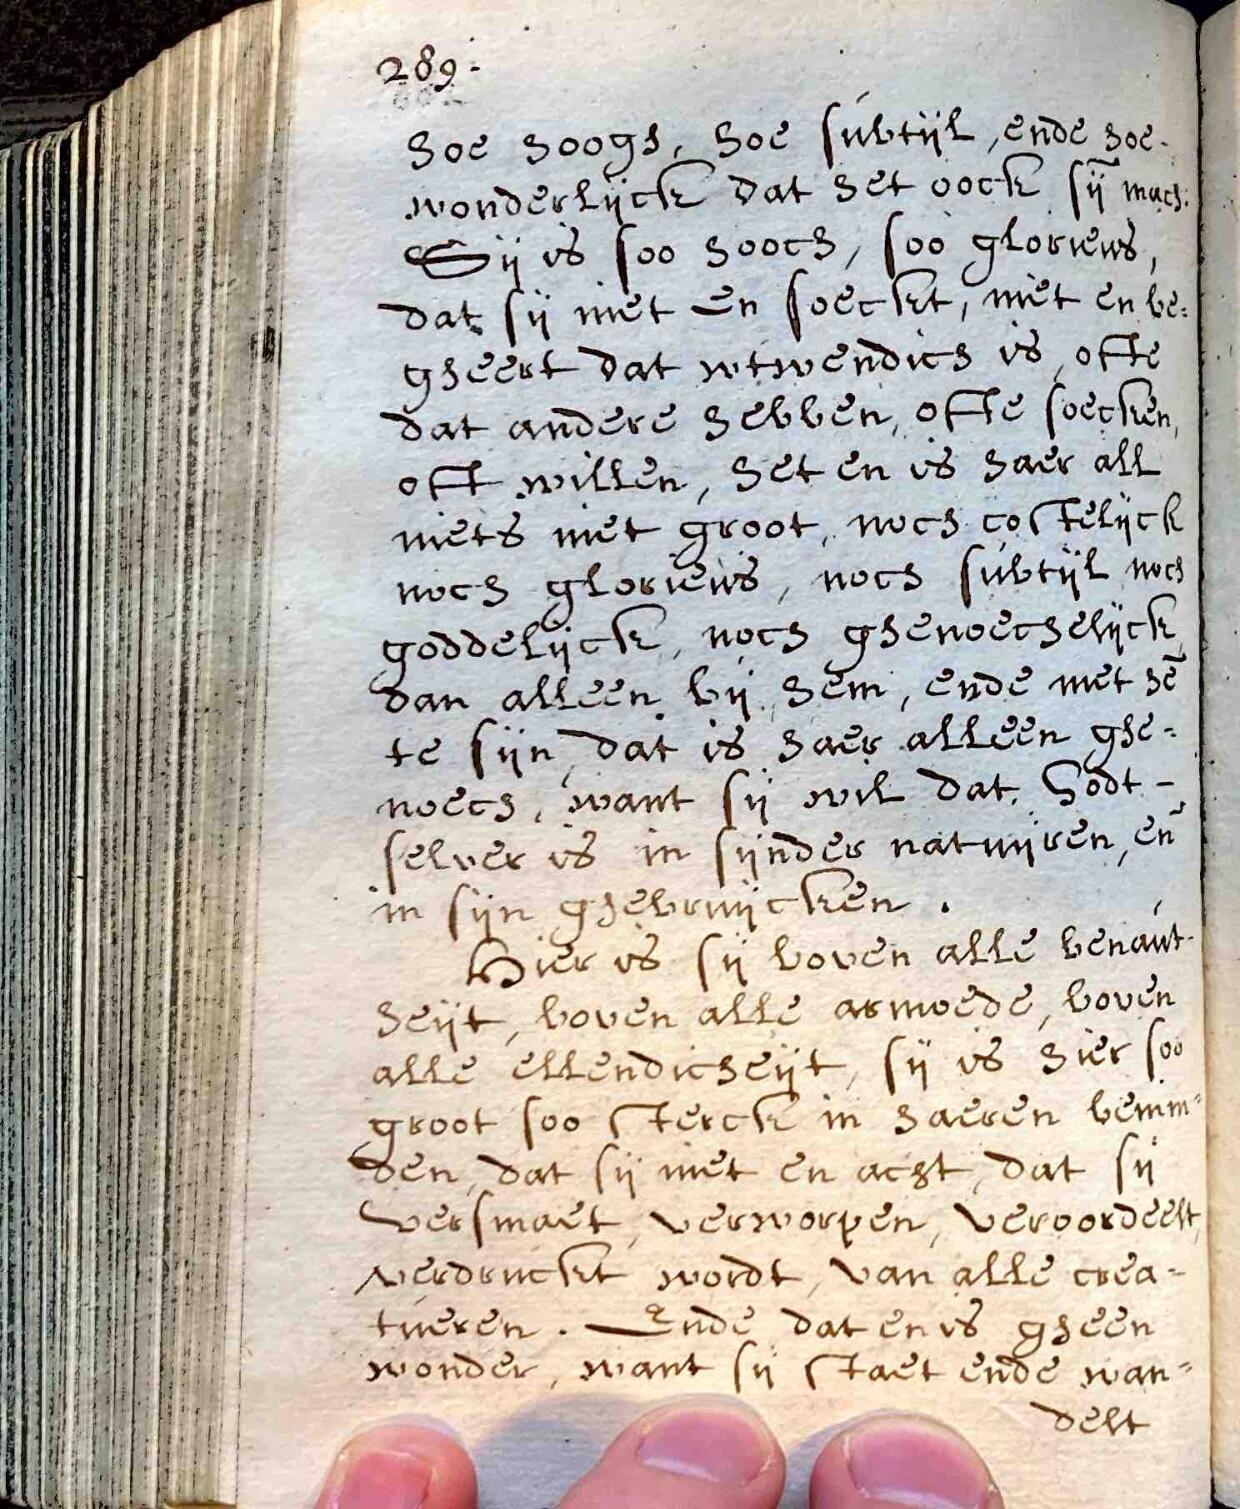 289.
hoe hoogh, hoe subtijl, ende hoe-
wonderlijck dat het oock sij̄ mach:
Sij is soo hooch, soo glorieus,
dat sij niet en soeckt, niet en be=
gheert dat wtwendich is, ofte
dat andere hebben, ofte soecken,
oft willen, het en is haer all
niets niet groot, noch costelijck
noch glorieus, noch subtijl noch
goddelijck, noch ghenoechelijck,
dan alleen bij hem, ende met hē
te sijn, dat is haer alleen ghe=
noech, want sij wil dat, Godt-
selver is in sijnder natuijren, en̄
in sijn ghebruijcken.
Hier is sij boven alle benaut-
heijt, boven alle armoede, boven
alle ellendicheijt, sij is hier soo
groot soo sterck in haeren bemin=
den, dat sij niet en acht, dat sij
versmaet, verworpen, veroordeelt,
verdruckt wordt, van alle crea-
tueren. Ende dat en is gheen
wonder, want sij staet ende wan=
delt